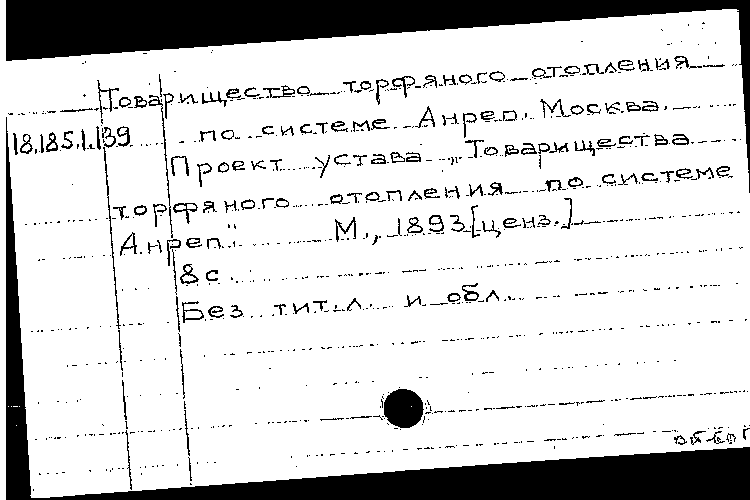 Товарищество торфяного отопления
18.185.1.139 по системе Анреп. Москва.
Проект устава „Товарищества
торфяного отопления по системе
Анреп". М., 1893 [ценз.].
8 с.
Без тит. л. и обл.